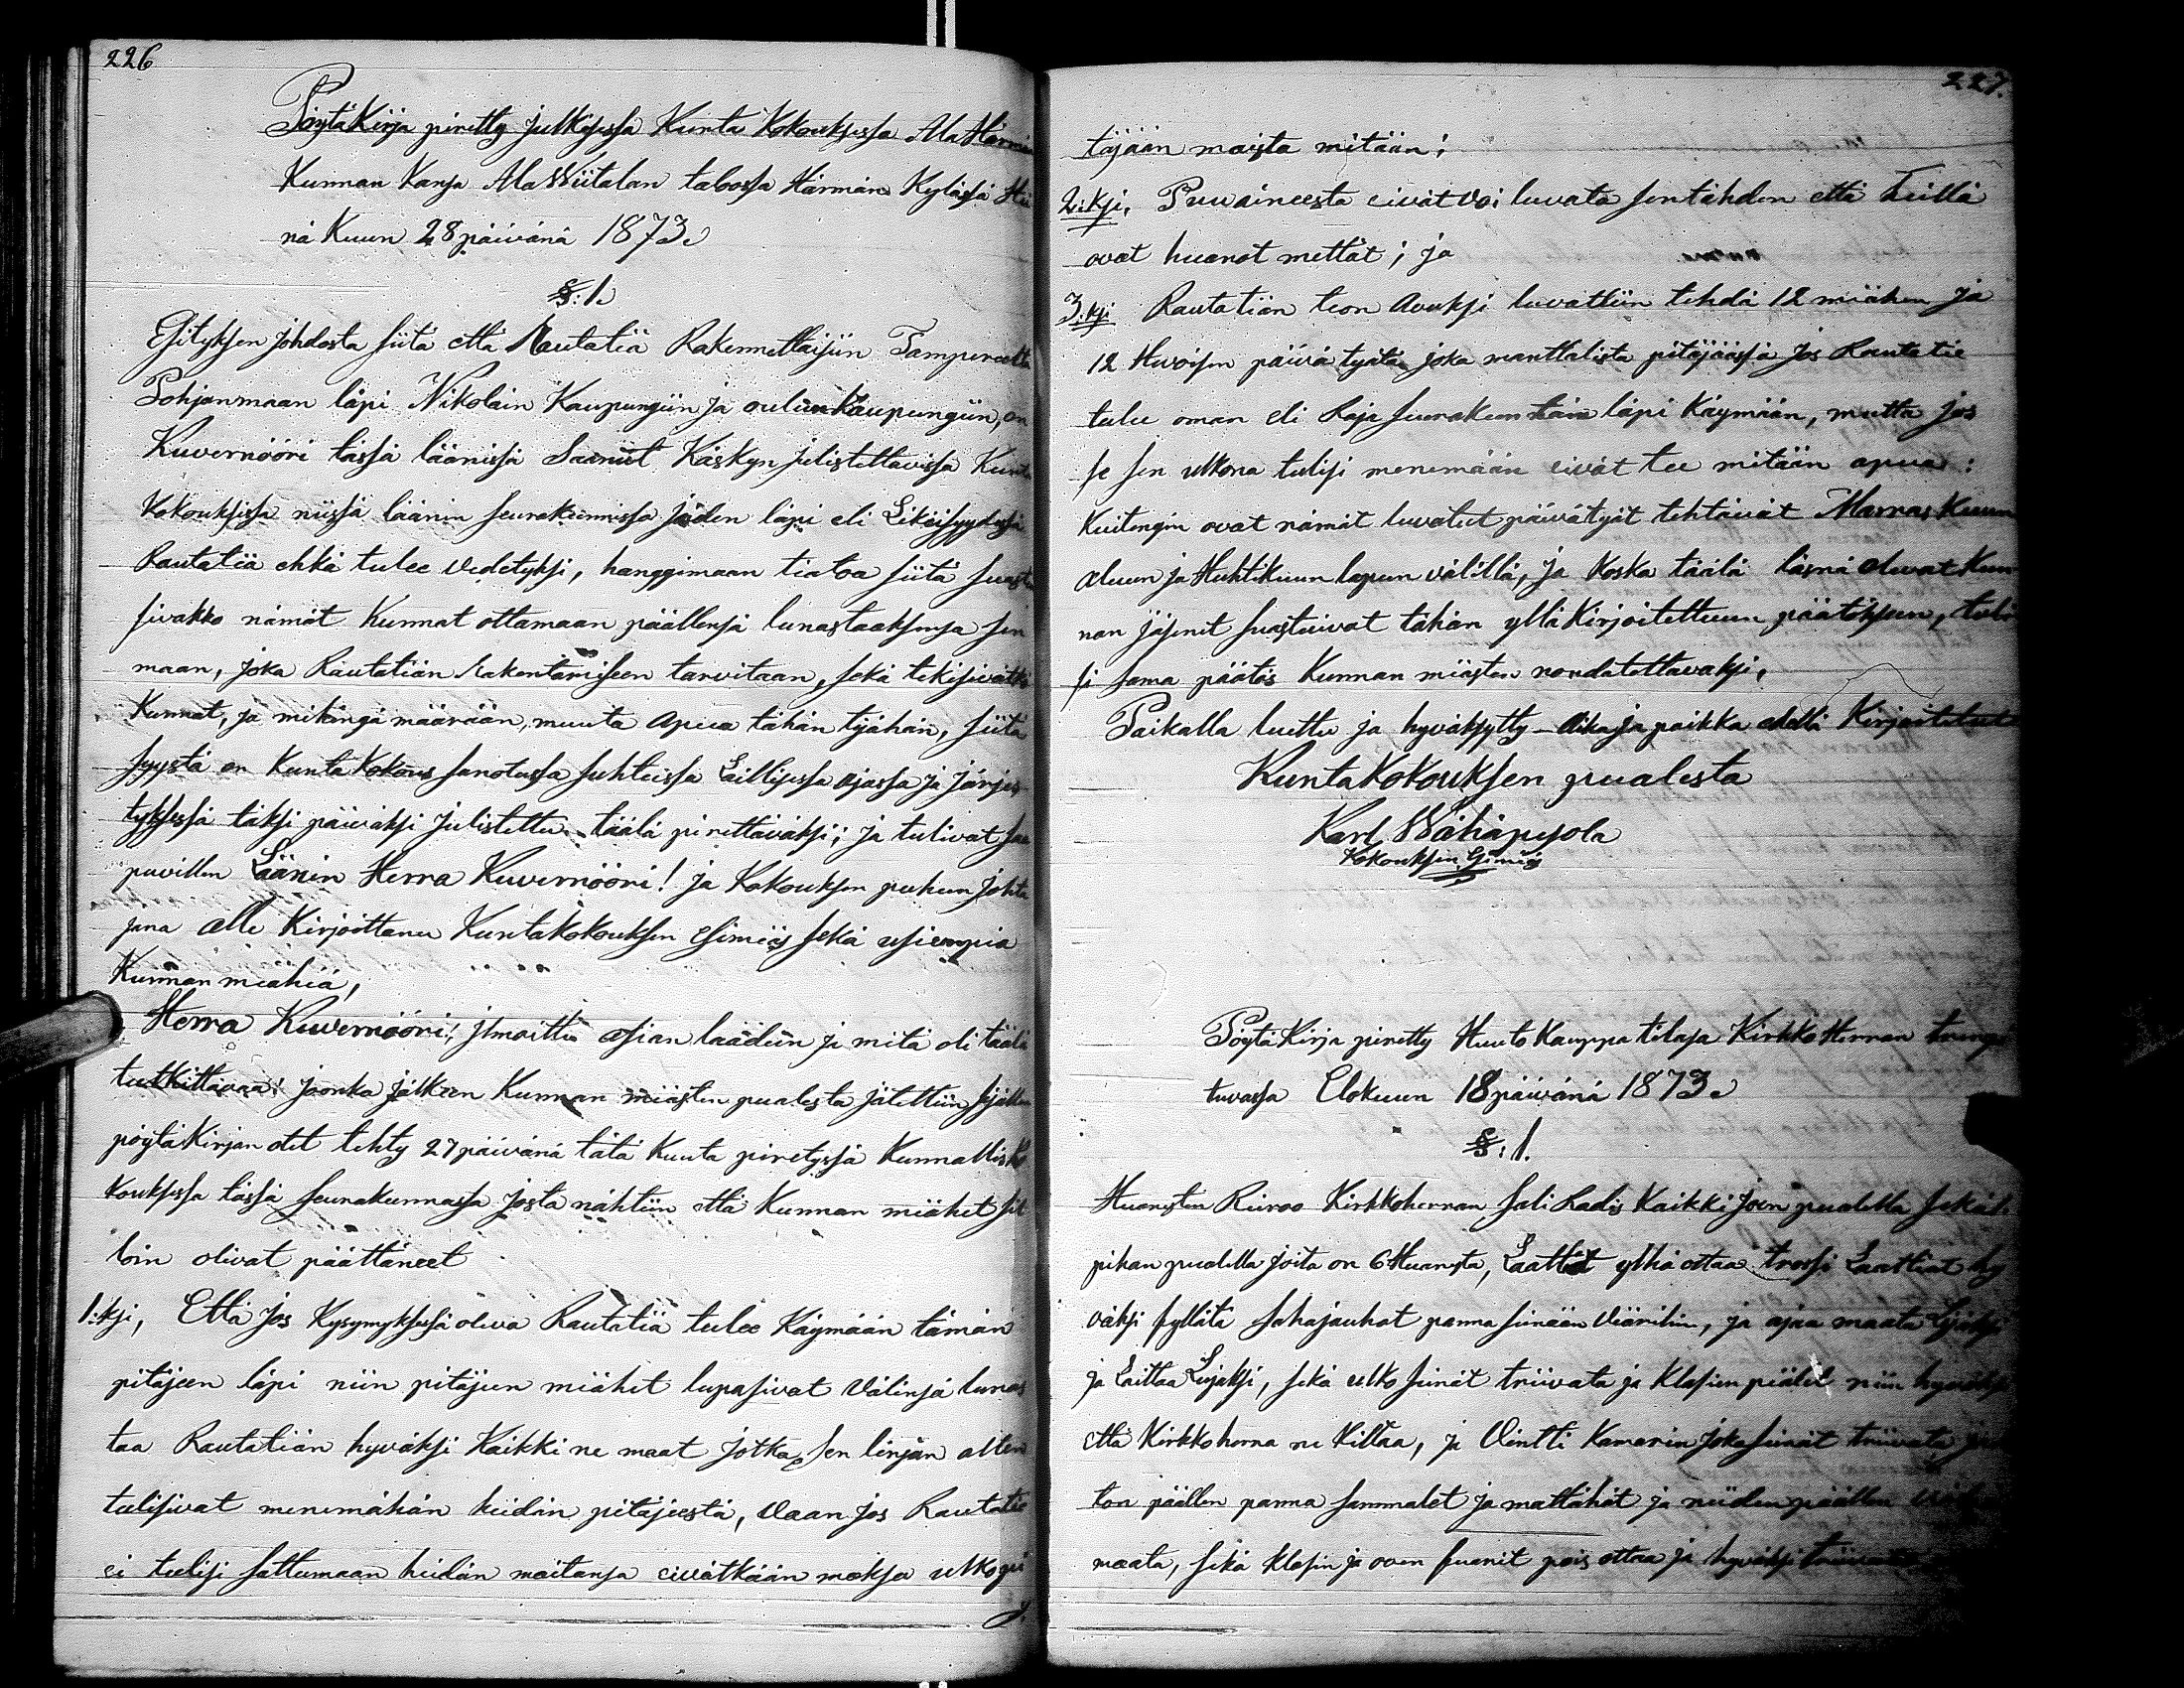 226
PöytäKirja piretty julkisessa Kunta Kokouksessa AlaHärmän
Kunnan Kansa AlaWiitalan talossa Härmän Kylässä Hei
nä Kuun 28 päivänä 1873.
§: 1.
Esityksen johdosta siitä että Rautatiä Rakennettaisiin Tampereelta
Pohjanmaan läpi Nikolain Kaupungiin ja oulunkaupungiin, on
Kuvernööri tässä läänissä Saanut Käskyn julistettavissa Kunta
Kokouksissa niissä läänin seurakunnissa joiden läpi eli Likeisyydessä
Rautatiä ehkä tulee vedetyksi, hanggimaan tiatoa siitä suastu
sivakko nämät Kunnat ottamaan päällensä lunastaaksensa sen
maan, joka Rautatiän rakentamiseen tarvitaan, sekä tekisivätkö
Kunnat, ja mihingä määrään, muuta apua tähän työhän, siitä
syystä on KuntaKokous sanotussa suhteissa Laillisessa ajassa ja järjes
tyksessä täksi päiväksi julistettu täälä pirettäväksi; ja tulivat saa
puvillen Läänin Herra Kuvernööri! ja Kokouksen puheen johta
jana alle Kirjoittanu KuntaKokouksen Esimiäs sekä usiempia
Kunnan miähiä,
Herra Kuvernööri! jlmoitti asian laadun ja mitä oli täälä
tutkittavaa! jonka jälkeen Kunnan miästen pualesta jätettiin sisällen
pöytäKirjan otet tehty 27 päivänä tätä Kuuta piretyssä Kunnallisko
kouksessa tässä seurakunnassa josta nähtiin että Kunnan miähet sil
loin olivat päättäneet
1:ksi, Että jos Kysymyksessä oleva Rautatiä tulee Käymään tämän
pitäjeen läpi niin pitäjeen miähet lupasivat välinsä lunas
taa Rautatiän hyväksi Kaikki ne maat jotka sen linjan allen
tulisivat menemähän heidän pitäjeestä, vaan jos Rautatie
ei tulisi sattumaan heidän maitansa eivätkään maksa ulkopi
j.
227.
täjään maista mitään;
2:ksi, Puuaineesta eivät voi luvata sentähden että heillä
ovat huanot mettät; ja
3:ksi Rautatiän teon avuksi luvattiin tehdä 12 miähen ja
12 Hevoisen päivä työtä joka manttalista pitäjäässä jos Rautatie
tulee oman eli Raja seurakuntain läpi Käymään, mutta jos
se sen ulkona tulisi menemään eivät tee mitään apua:
Kuitengin ovat nämät luvatut päivätyöt tehtävät Marras Kuun
alun ja Huhtikuun lopun välillä, ja Koska täälä läsnä olevat Kun
nan jäsenet suastuivat tähän ylläKirjoitettuun päätökseen, tuli
si sama päätös Kunnan miästen noudatettavaksi,
Paikalla luettu ja hyväksytty Aika ja paikka edellä Kirjoitetut
KuntaKokouksen pualesta
Karl Wähäpesola
Kokouksen Esimiäs
PöytäKirja piretty HuutoKauppa tilasa KirkkoHerran
tuvassa Elokuun 18 päivänä 1873.
§: 1.
Huanesten Reiroo Kirkkoherran Sali Radis Kaikki joen pualella sekä
pihan pualella joita on 6 Huanesta, Laattiat ylhä ottaa trossi Laattiat hy
väksi fyllätä sahajauhot panna sinään väärihin, ja ajaa maata Lisäksi
ja Laittaa Lujaksi, sekä ulko seinät triivata ja klasien piälet niin hyväksi
että Kirkkoherra ne Kittaa, ja Vintti Kamarin joka seinät triivata
ton päällen panna sammalet ja mattähät ja niiden päällen
maata, sekä klasin ja oven fuarit pois ottaa ja hyväksi triivata